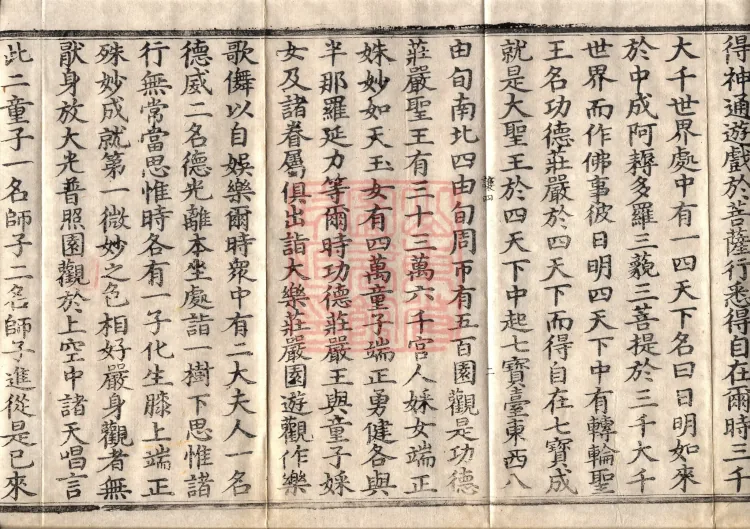 得神通遊戲於菩薩行悉得自在爾時三千
大千世界處中有一四天下名曰日明如來
於中成阿耨多羅三藐三菩提於三千大千
世界而作佛事彼日明四天下中有轉輪聖
王名功德莊嚴於四天下而得自在七寶成
就是大聖王於四天下中起七寶臺東西八
護四
二
由旬南北四由旬周帀有五百園觀是功德
莊嚴聖王有三十三萬六千宮人婇女端正
姝妙如天玉女有四萬童子端正勇健各與
半那羅延力等爾時功德莊嚴王與童子婇
女及諸眷屬俱出詣大樂莊嚴園遊觀作樂
歌儛以自娛樂爾時衆中有二大夫人一名
德威二名德光離本坐處詣一樹下思惟諸
行無常當思惟時各有一子化生膝上端正
殊妙成就第一微妙之色相好嚴身觀者無
猒身放大光普照園觀於上空中諸天唱言
此二童子一名師子二名師子進從是已來